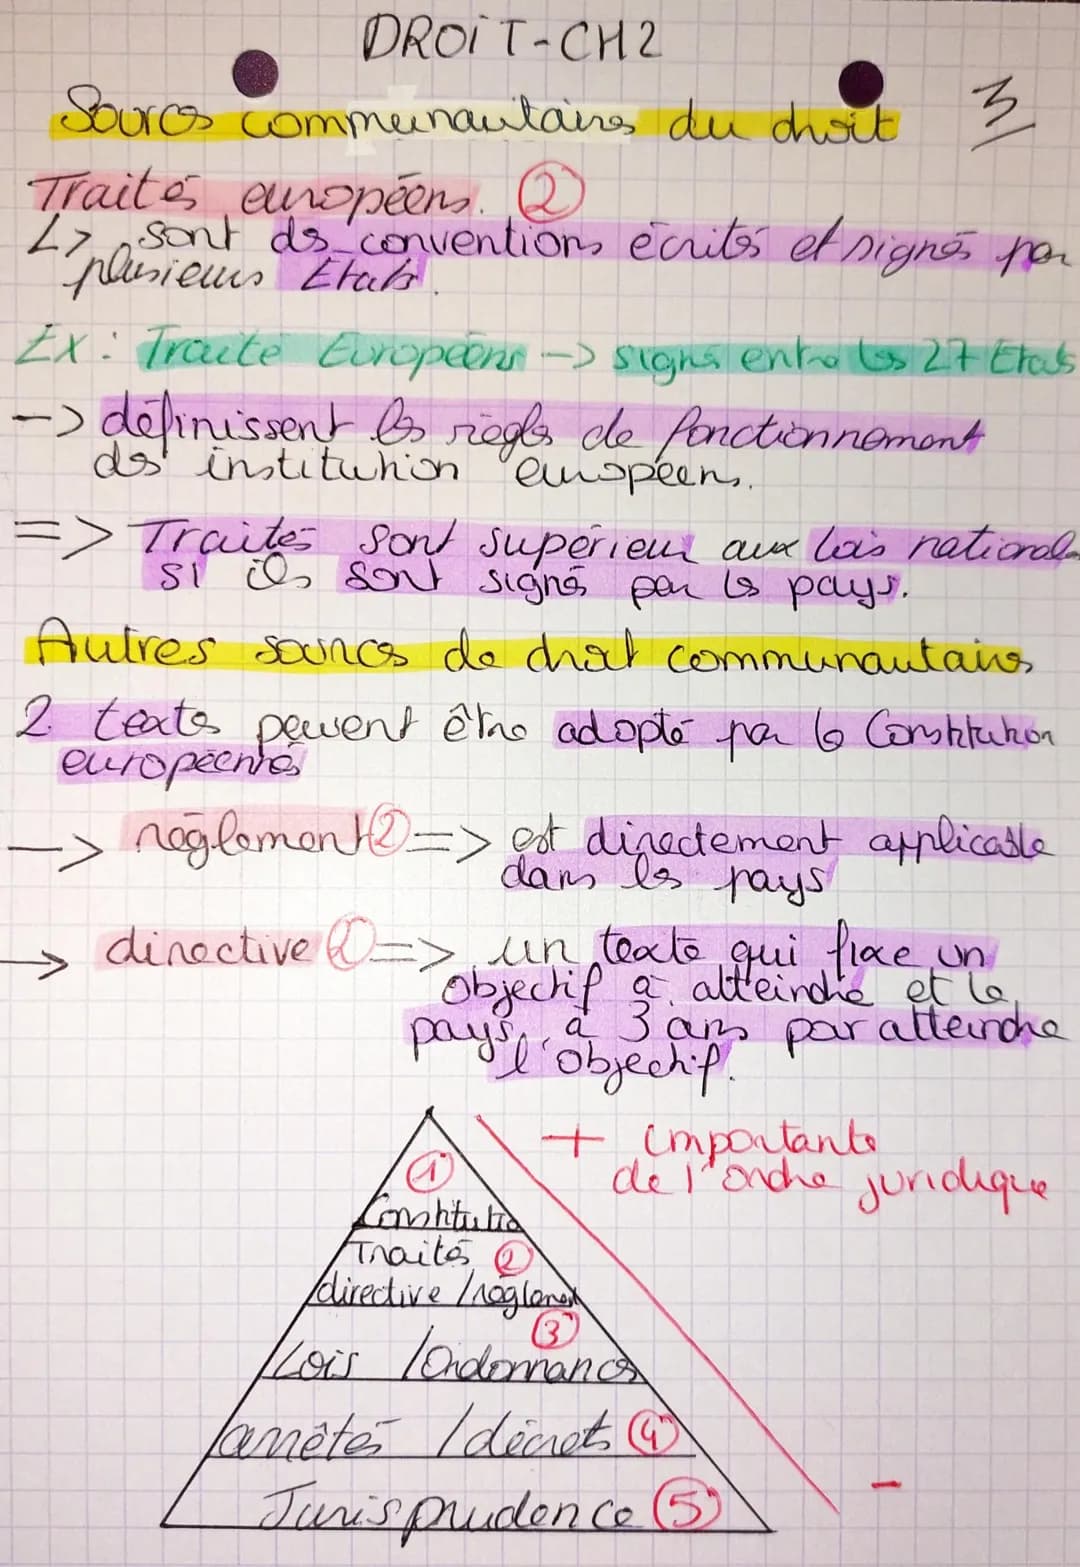 DROIT-CH2
3
Sources communautaires du droit
Traités européens. ②
↳ sont des conventions écrites et signés par
plusieurs Etats.
Ex: Traité Européens -> signés entre les 27 Etats
-> définissent les règles de fonctionnement
des institution européens.
=> Traités sont supérieur aux lois national
si ils sont signés par les pays.
Autres sources de droit communautaires
2 textes peuvent être adopté par le Constitution
européennes
-> réglement ② => est directement applicable
dans les pays
-> directive ② => un texte qui fixe un
objectif à atteindre et le
pays, à 3 ans par atteindre
l'objectif.
+ importante
de l'ordre juridique
①
Constitutio
Traités ②
directive / réglement
③
Lois / Ordonnances
arrêtés / décrets ④
-
Jurisprudence ⑤